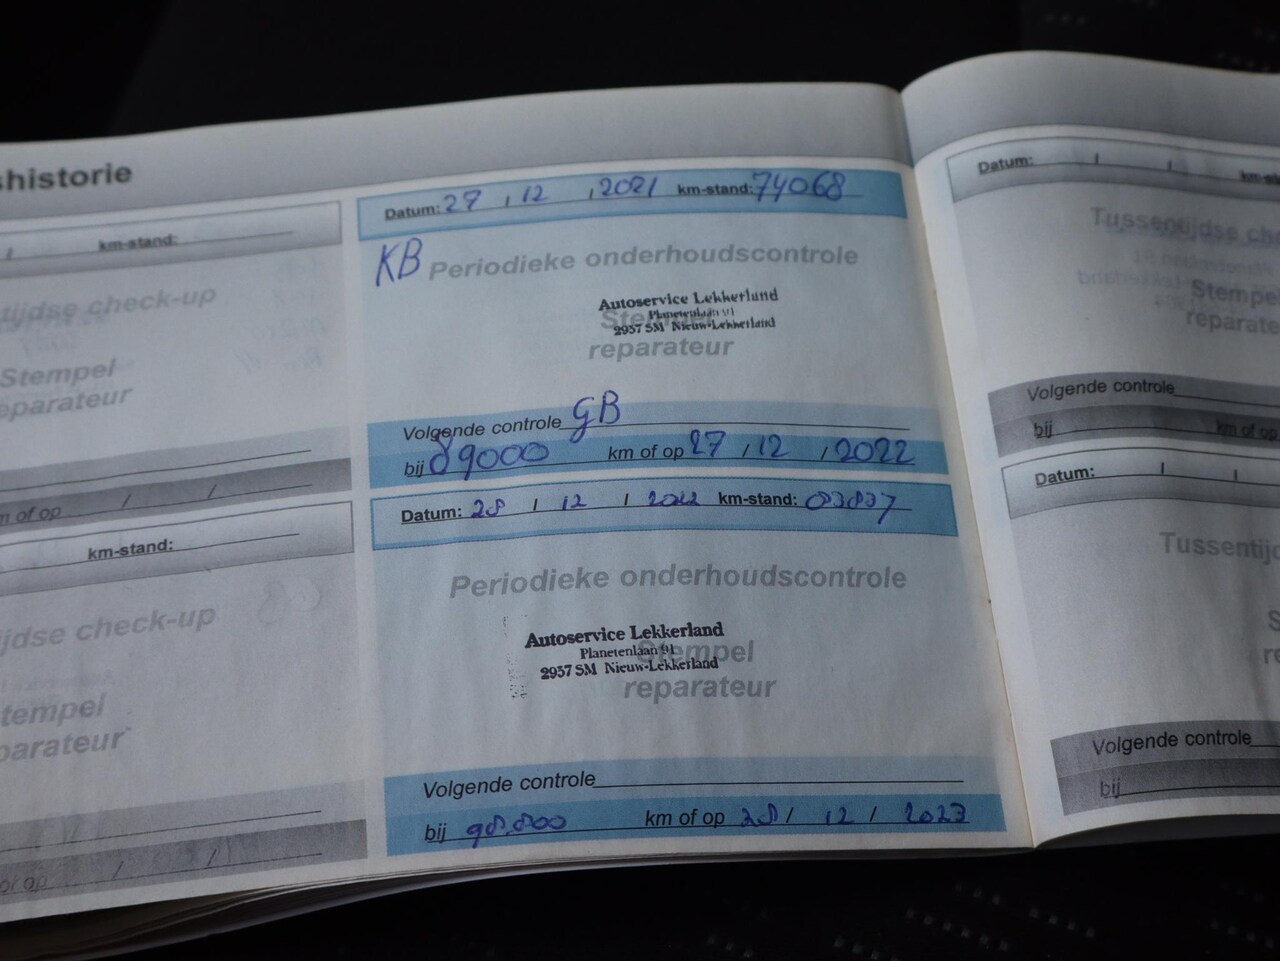 shistorie
km-stand:
tijdse check-up
Stempel
eparateur
m of op / /
km-stand:
ijdse check-up
tempel
parateur
or op / /
Datum: 27 / 12 / 2021 km-stand: 74068
KB Periodieke onderhoudscontrole
Autoservice Lekkerland
Planetenlaan 91
2957 SM Nieuw-Lekkerland
Stempel
reparateur
Volgende controle GB
bij 89000 km of op 27 / 12 / 2022
Datum: 28 / 12 / 2022 km-stand: 83837
Periodieke onderhoudscontrole
Autoservice Lekkerland
Planetenlaan 91
2957 SM Nieuw-Lekkerland
Stempel
reparateur
Volgende controle
bij 98.800 km of op 28 / 12 / 2023
Datum: / / km-sta
Tussentijdse che
Stempe
reparate
Volgende controle
bij km of op
Datum: / /
Tussentijd
S
re
Volgende controle
bij